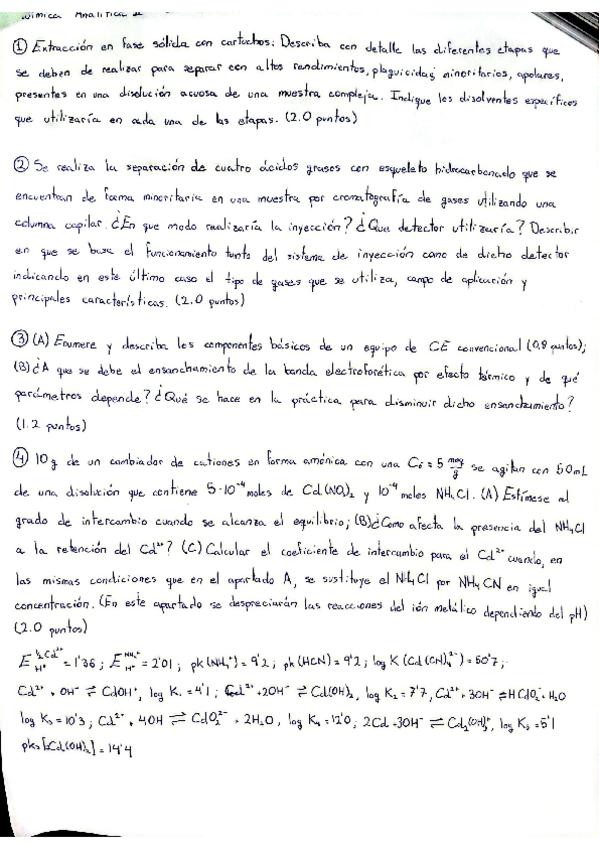 Química Analítica II
① Extracción en fase sólida con cartuchos: Describa con detalle las diferentes etapas que
se deben de realizar para separar con altos rendimientos, plaguicidas minoritarios, apolares,
presentes en una disolución acuosa de una muestra compleja. Indique los disolventes específicos
que utilizaría en cada una de las etapas. (2.0 puntos)
② Se realiza la separación de cuatro ácidos grasos con esqueleto hidrocarbonado que se
encuentran de forma minoritaria en una muestra por cromatografía de gases utilizando una
columna capilar. ¿En que modo realizaría la inyección? ¿Que detector utilizaría? Describir
en que se basa el funcionamiento tanto del sistema de inyección como de dicho detector
indicando en este último caso el tipo de gases que se utiliza, campo de aplicación y
principales características. (2.0 puntos)
③ (A) Enumere y describa los componentes básicos de un equipo de CE convencional (0,8 puntos);
(B) ¿A que se debe el ensanchamiento de la banda electroforética por efecto térmico y de qué
parámetros depende? ¿Qué se hace en la práctica para disminuir dicho ensanchamiento?
(1.2 puntos)
④ 10 g de un cambiador de cationes en forma amónica con una Ci = 5 meq/g se agitan con 50 mL
de una disolución que contiene 5·10⁻⁴ moles de Cd(NO₃)₂ y 10⁻⁴ moles NH₄Cl. (A) Estímese el
grado de intercambio cuando se alcanza el equilibrio; (B) ¿Como afecta la presencia del NH₄Cl
a la retención del Cd²⁺? (C) Calcular el coeficiente de intercambio para el Cd²⁺ cuando, en
las mismas condiciones que en el apartado A, se sustituye el NH₄Cl por NH₄CN en igual
concentración. (En este apartado se despreciarán las reacciones del ión metálico dependiendo del pH)
(2.0 puntos)
E ½Cd²⁺ H⁺ = 1'36; E NH₄⁺ H⁺ = 2'01; pk(NH₄⁺) = 9'2; pk(HCN) = 9'2; log K (Cd(CN)₄²⁻) = 50'7;
Cd²⁺ + OH⁻ ⇌ CdOH⁺, log K₁ = 4'1; Cd²⁺ + 2OH⁻ ⇌ Cd(OH)₂, log K₂ = 7'7, Cd²⁺ + 3OH⁻ ⇌ HCdO₂⁻ + H₂O
log K₃ = 10'3; Cd²⁺ + 4OH ⇌ CdO₂²⁻ + 2H₂O, log K₄ = 12'0; 2Cd + 3OH⁻ ⇌ Cd₂(OH)₃⁺, log K₅ = 5'1
pks [Cd(OH)₂] = 14'4